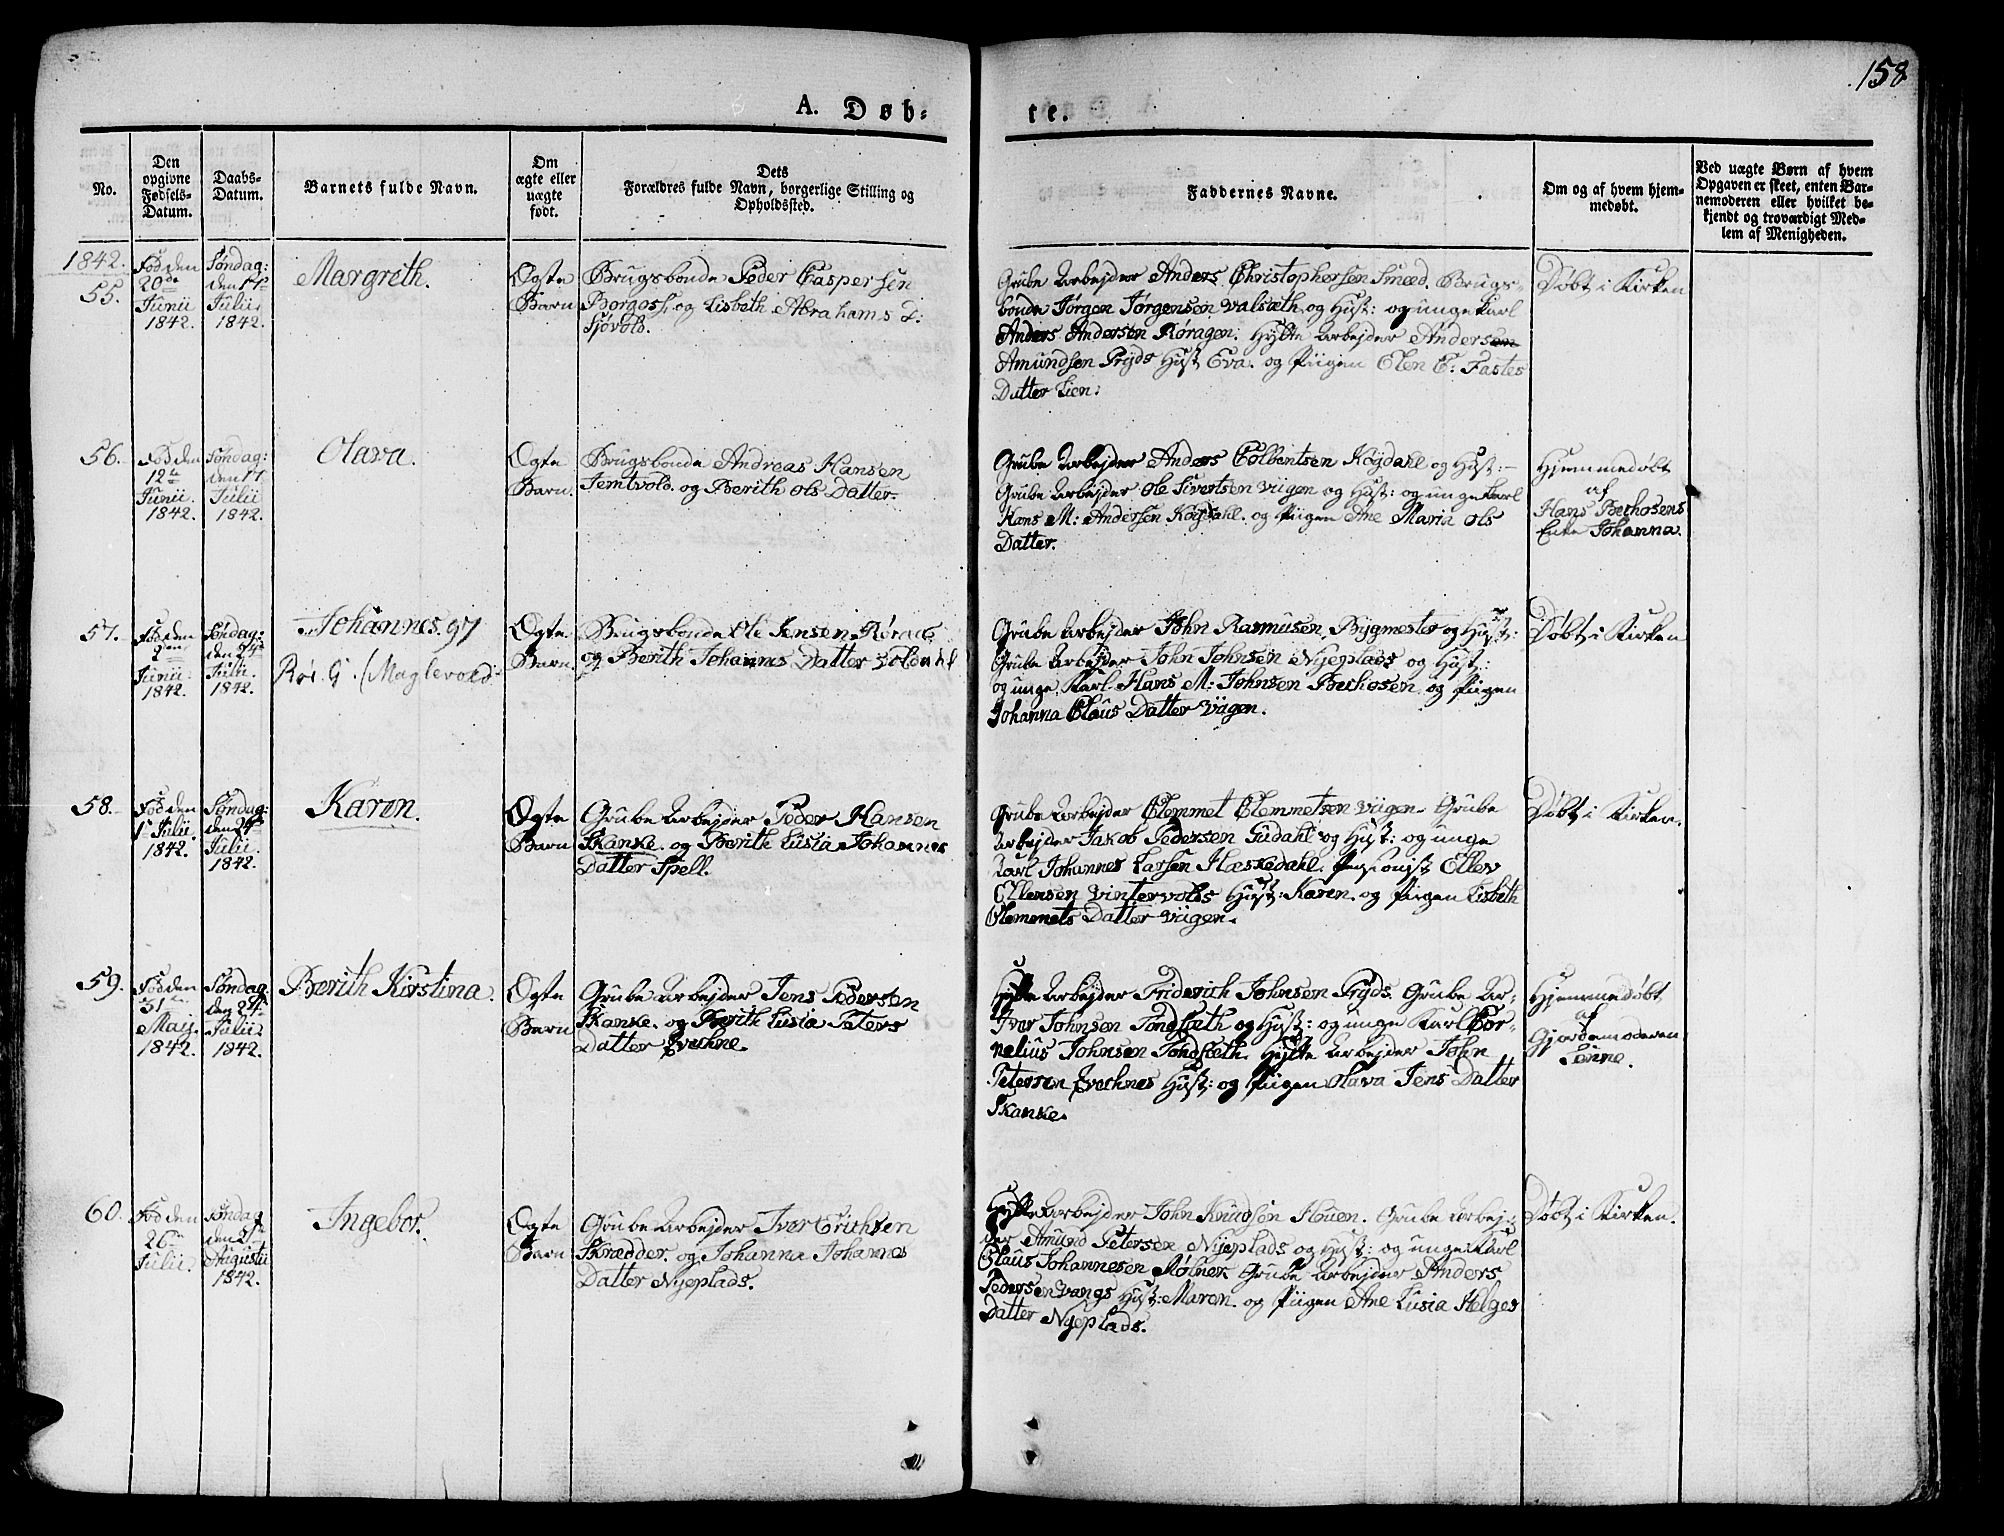 158
A. Døb=
te.
No.
Den opgivne Fødsels-Datum.
Daabs-Datum.
Barnets fulde Navn.
Om ægte eller uægte født.
Dets Forældres fulde Navn, borgerlige Stilling og Opholdssted.
Faddernes Navne.
Om og af hvem hjem-medøbt.
Ved uægte Børn af hvem Opgaven er skeet, enten Bar-nemoderen eller hvilket be-kjendt og troværdigt Med-lem af Menigheden.
1842.
55.
Fød den
20de
Junii
1842.
Søndag:
den 17de
Julii
1842.
Margreth.
Ögte
Barn
Brugsbonde Peder Caspersen
Borgos, og Lisbeth Abrahams D.
Sjøvold.
Grube Arbejder Anders Christophersen Smed. Brugs-
bonde Jørgen Jørgensen Valsæth og Hust: og unge Karl
Anders Andersen Röragen. Hytte Arbejder Anders
Amundsen Pryds Hust Eva. og Piigen Elen E: Fastes
Datter Lien.
Döbt i Kirken
56.
Fød den
12te
Junii
1842.
Søndag:
den 17
Julii
1842.
Olava.
Ögte
Barn.
Brugsbonde Andreas Hansen
Jemtvold. og Berith Ols Datter.
Grube Arbejder Anders Colbentsen Köjdahl og Hust:
Grube Arbejder Ole Sivertsen Viigen og Hust: og unge Karl
Hans M: Andersen Köjdahl. og Piigen Ane Maria Ols
Datter.
Hjemmedöbt
af
Hans Berhosens
Enke Johanna.
57.
Fød den
2den
Junii
1842.
Søndag:
den 24de
Julii
1842.
Johannes. 97
Rör. G. (Maglevold
Ögte
Barn.
Brugsbonde Ole Jensen Röraas
og Berith Johannes Datter
Grube Arbejder John Rasmusen Bygmester og Hust:
Grube Arbejder John Johnsen Nyeplads og Hust:
og unge Karl Hans M: Johnsen Berhosen og Piigen
Johanna Claus Datter Viigen.
Döbt i Kirken
58.
Fød den
1te Julii
1842.
Søndag:
den 24de
Julii
1842.
Karen.
Ögte
Barn
Grube Arbejder Peder Hansen
Skanke. og Berith Lusia Johannes
Datter Spell.
Grube Arbejder Clemmet Clemmetsen Viigen. Grube
Arbejder Jakob Pedersen Sudahl og Hust: og unge
Karl Johannes Larsen Hæskedahl. Pensionist Ellev
Ellensen Vintervolds Hust: Karen. og Piigen Lisbeth
Clemmets Datter Viigen.
Döbt i Kirken.
59.
Fød den
31te
Maij
1842.
Søndag
den 24de
Julii
1842.
Berith Kirstina.
Ögte
Barn
Grube Arbejder Jens Pedersen
Skanke. og Berith Lusia Peters
Datter Evechne.
Hytte Arbejder Friderich Johnsen Pryds. Grube Ar-
Iver Johnsen Tondsæth og Hust: og unge Karl Cor-
nelius Johnsen Tondsæth. Hytte Arbejder John
Petersen Evechnes Hust: og Piigen Olava Jens Datter
Skanke.
Hjemmedöbt
af
Gjordemoderen
Lönne.
60.
Fød den
26de
Julii.
Søndag
den 21de
Augustii
1842.
Ingebor.
Ögte
Barn
Grube Arbejder Iver Erichsen
Skrædder. og Johanna Johannes
Datter Nyeplads.
Hytte Arbejder John Knudsen Houen. Grube Arbej-
der Amund Petersen Nyeplads og Hust: og unge Karl
Claus Johannesen Mölner Grube Arbejder Anders
Pedersen Vangs Hust: Maren. og Piigen Ane Lusia Helges
Datter Nyeplads.
Döbt i Kirken.